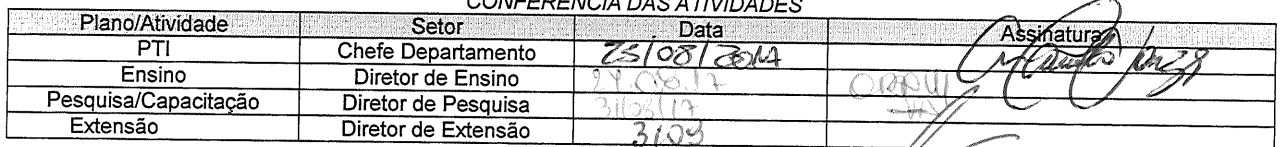 CONFERÊNCIA DAS ATIVIDADES
Plano/Atividade Setor Data Assinatura
PTI Chefe Departamento 25/08/2017
Ensino Diretor de Ensino
Pesquisa/Capacitação Diretor de Pesquisa 31/08/17
Extensão Diretor de Extensão 31/08